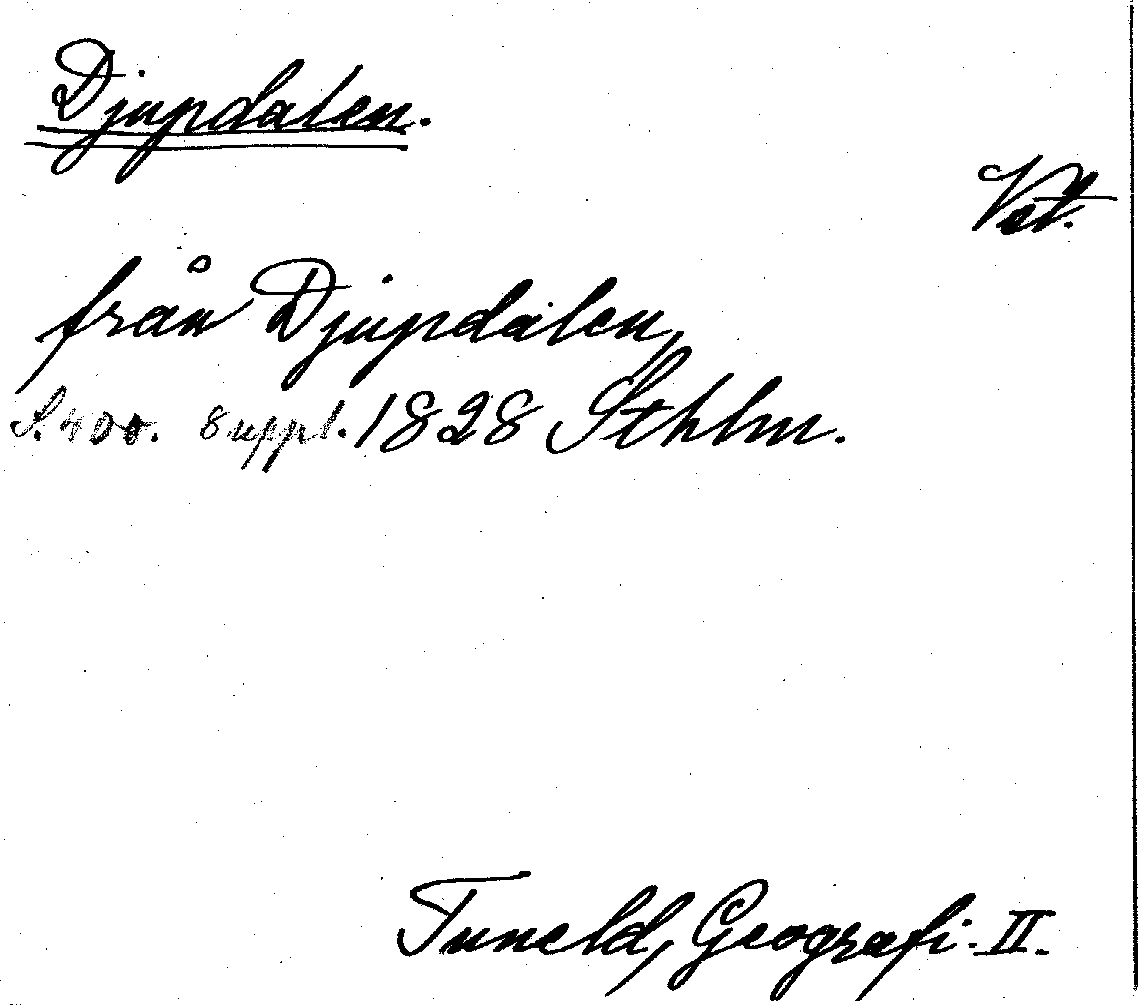 Djupdalen.
Vst.
från Djupdalen,
S. 400. Suppl. 1828 Sthlm.
Tuneld, Geografi. II.